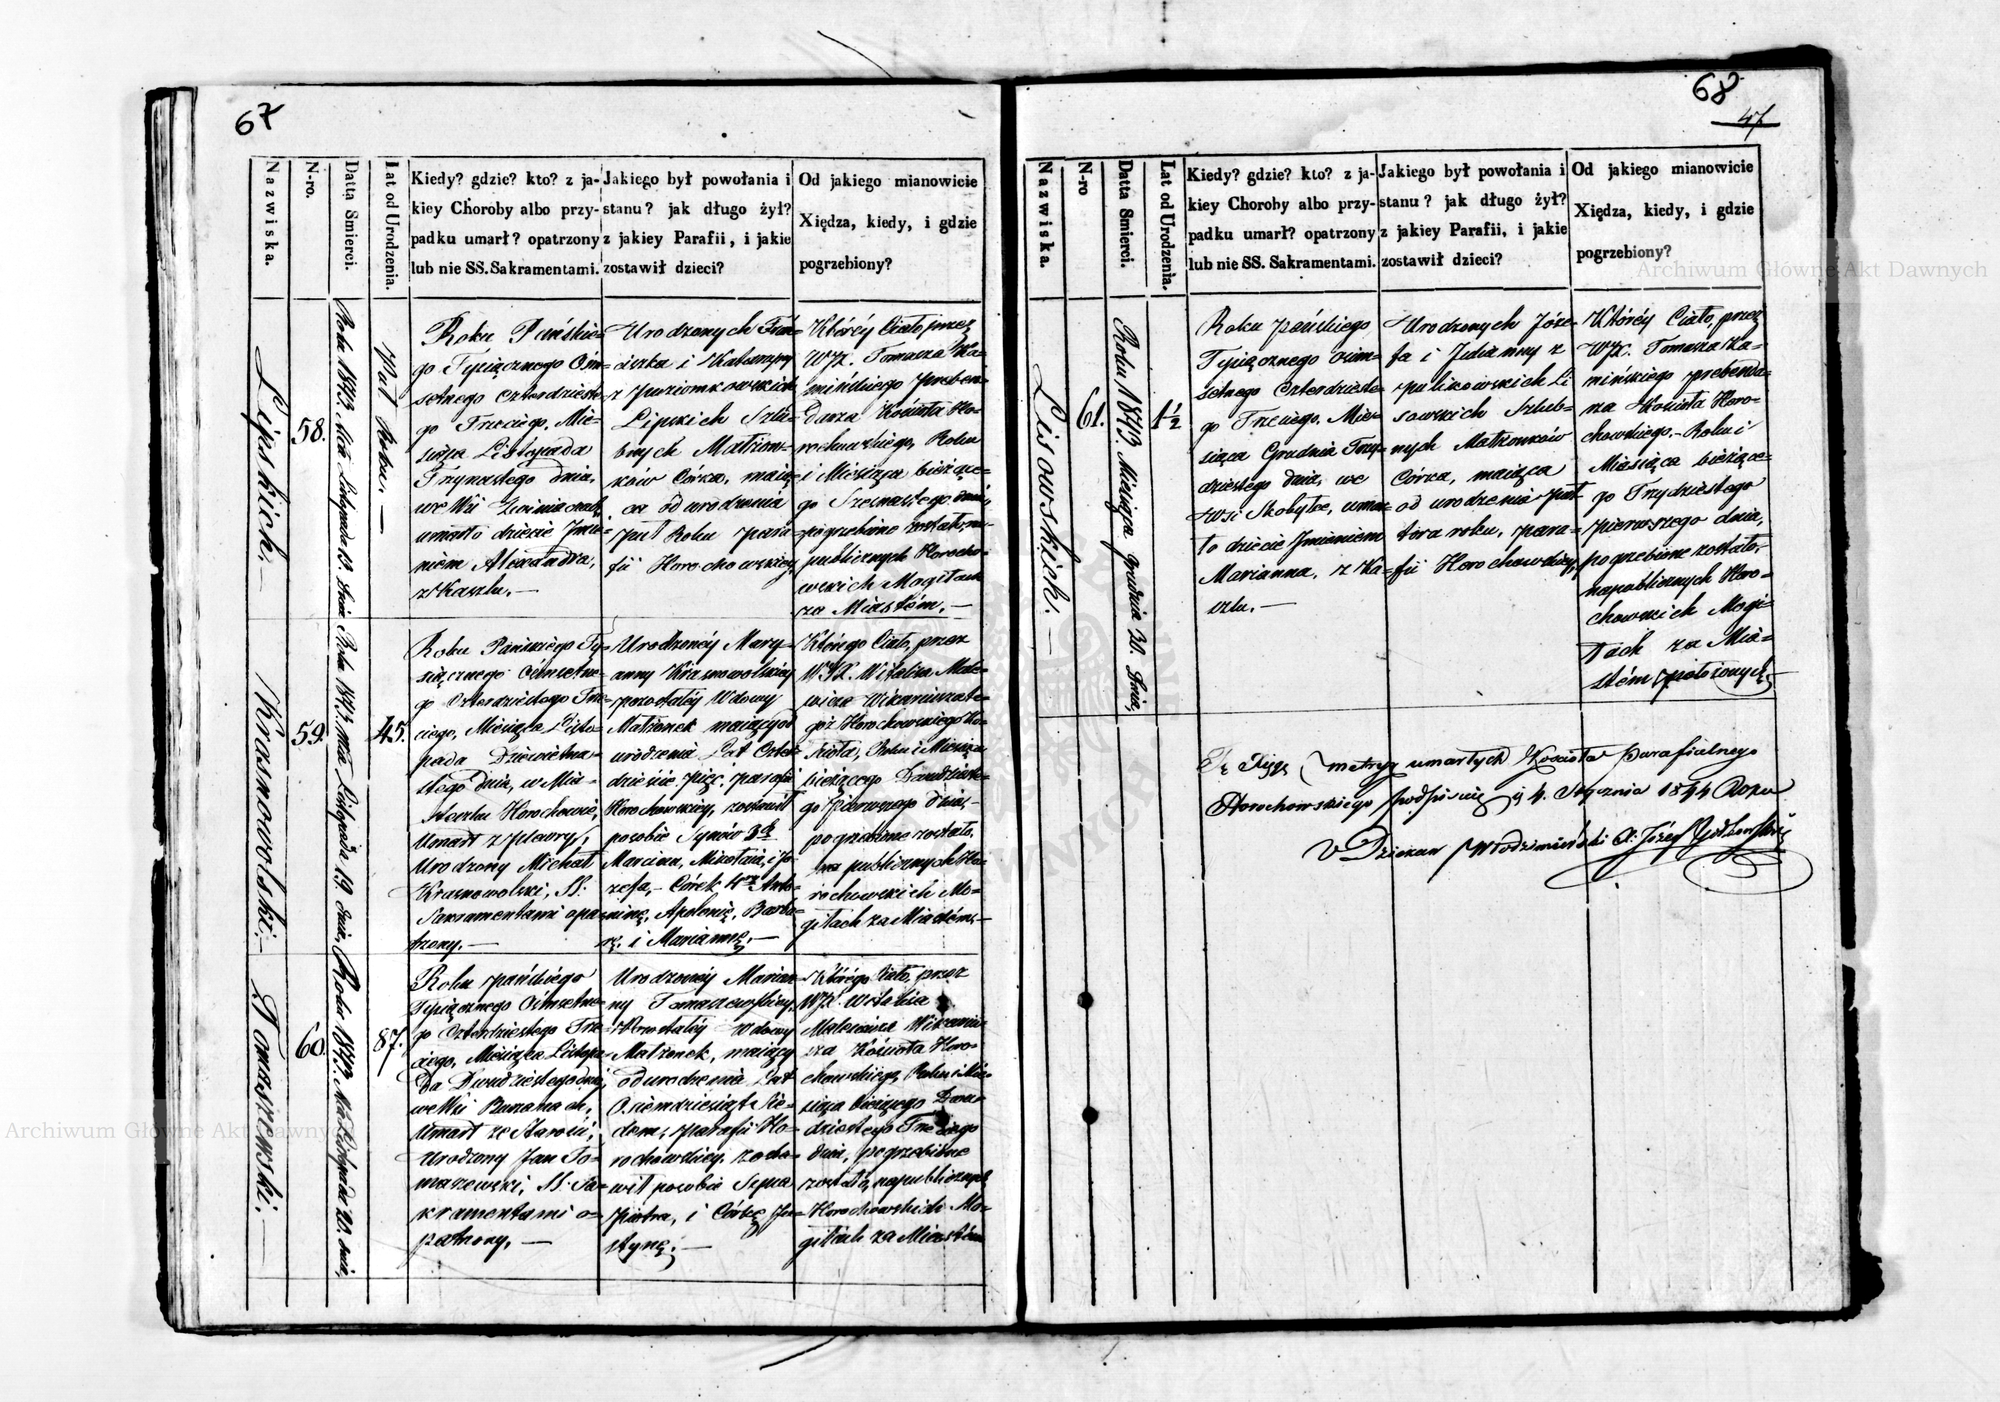 67
Nazwiska.
N-ro.
Datta Smierci.
Lat od Urodzenia.
Kiedy? gdzie? kto? z ja-
kiey Choroby albo przy-
padku umarł? opatrzony
lub nie SS. Sakramentami.
Jakiego był powołania i
stanu? jak długo żył?
z jakiey Parafii, i jakie
zostawił dzieci?
Od jakiego mianowicie
Xiędza, kiedy, i gdzie
pogrzebiony?
Lipskich.
58.
Roku 1843. Listopada 13. dnia
Puł Roku.
Roku Pańskie-
go Tysiącznego Ośm-
setnego czterdzieste-
go Trzeciego, Mie-
siąca Listopada
Trzynastego dnia,
we Wsi
umarło dziecie Imie-
niem Alexandra,
z Kaszlu.
Urodzonych Fran-
ciszka i Katarzyny
z Poziomkowskich
Lipskich Szlu-
bnych Małżon-
ków Córka, maią-
ca od urodzenia
puł Roku para-
fii Horochowskiey
Któréy Ciało, przez
WJX. Tomasza Ka-
mińskiego preben-
darza Kościoła Ho-
rochowskiego, Roku
i Miesiąca bieżące-
go Szesnastego dnia,
pogrzebione zostało, na
publicznych Horocho-
wskich Mogiłach
za Miastém.
Krasnowolski.
59.
Roku 1843. Listopada 19. dnia,
45.
Roku Pańskiego Ty-
siącznego Ośmsetne-
go Czterdziestego Trze-
ciego, Miesiąca Listo-
pada Dziewietna-
stego dnia, w Mia-
steczku Horochowie,
Umarł z pleury,
Urodzony Michał
Krasnowolski, SS.
Sakramentami opa-
trzony.
Urodzonéy Mary-
anny Krasnowolskiéy
pozostałéy Wdowy
Małżonek maiący od
urodzenia Lat Czter-
dzieście pięć, parafii
Horochowskiey, zostawił
posobie Synów 3ch
Marcina, Mikołaia, i Jó-
zefa, Córek 4ry Anto-
ninę, Apolonię, Barba-
rę, i Mariannę.
Którego Ciało, przez
WJX. Witalisa Male-
wicza Wikariusza te-
goż Horochowskiego Ko-
ścioła, Roku i Miesiąca
bieżącego Dwudzieste-
go pierwszego dnia,
pogrzebione zostało,
na publicznych Ho-
rochowskich Mo-
giłach za Miastém.
Tomaszewski.
60.
Roku 1843. Listopada 20. dnia,
87.
Roku pańskiego
Tysiącznego Ośmsetne-
go Czterdziestego Trze-
ciego, Miesiąca Listopa-
da Dwudziestego dnia,
we Wsi
Umarł ze Starości,
Urodzony Jan To-
maszewski, SS. Sa-
kramentami o-
patrzony.
Urodzonéy Marian-
ny Tomaszewskiey,
Pozostałéy Wdowy
Małżonek, maiący
od urodzenia Lat
Osiemdziesiąt Sie-
dem, parafii Ho-
rochowskiey, zosta-
wił posobie Syna
Piotra, i Córkę Ju-
stynę.
Którego Ciało, przez
WJX. Witalisa
Malewicza Wikariu-
sza Kościoła Horo-
chowskiego, Roku i Mie-
siąca bieżącego Dwu-
dziestego Trzeciego
dnia, pogrzebione
zostało, na publicznych
Horochowskich Mo-
giłach za Miastém
68
47
Nazwiska.
N-ro
Datta Smierci.
Lat od Urodzenia.
Kiedy? gdzie? kto? z ja-
kiey Choroby albo przy-
padku umarł? opatrzony
lub nie SS. Sakramentami.
Jakiego był powołania i
stanu? jak długo żył?
z jakiey Parafii, i jakie
zostawił dzieci?
Od jakiego mianowicie
Xiędza, kiedy, i gdzie
pogrzebiony?
Lisowskich.
61.
Roku 1843. Miesiąca grudnia 30. dnia,
1½
Roku pańskiego
Tysiącznego ośm-
setnego Czterdzieste-
go Trzeciego, Mie-
siąca Grudnia Trzy-
dziestego dnia, we
Wsi Skobyłce, umar-
ło dziecie Imieniem
Marianna, z Ka-
szlu.
Urodzonych Józe-
fa i Julianny z
Pulikowskich Li-
sowskich Szlub-
nych Małżonków
Córka, maiąca
od urodzenia puł-
tora roku, para-
fii Horochowskiey,
Któréy Ciało, przez
WJX. Tomasza Ka-
mińskiego prebenda-
rza Kościoła Horo-
chowskiego, Roku i
Miesiąca bieżące-
go Trzydziestego
pierwszego dnia,
pogrzebione zostało,
na publicznych Horo-
chowskich Mogi-
łach za Mia-
stém położonych
Tę Xięgę metryg umarłych Kościoła Parafialnego
Horochowskiego podpisuię 4. Stycznia 1844 Roku
Dziekan Włodzimirski X. Józef
Archiwum Główne Akt Dawnych
Archiwum Główne Akt Dawnych